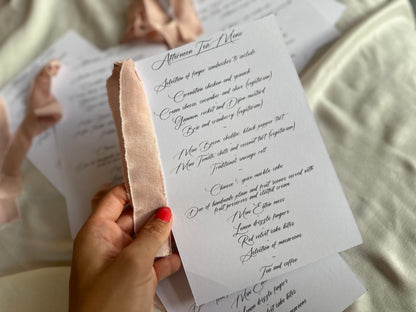 Afternoon Tea Menu
Selection of finger sandwiches to include
Coronation chicken and spinach
Cream cheese, cucumber and chive (vegetarian)
Gammon, rocket and Dijon mustard
Brie and cranberry (vegetarian)
~
Mini Bacon, cheddar, black pepper tart
Mini Tomato, chilli and coconut tart (vegetarian)
Traditional sausage roll
~
Duo of handmade plain and fruit scones served with
fruit preserves and clotted cream
Mini Eton mess
Lemon drizzle fingers
Red velvet cake bites
Selection of macaroons
~
Tea and coffee
Mini Eton mess
Lemon drizzle fingers
Red velvet cake bites